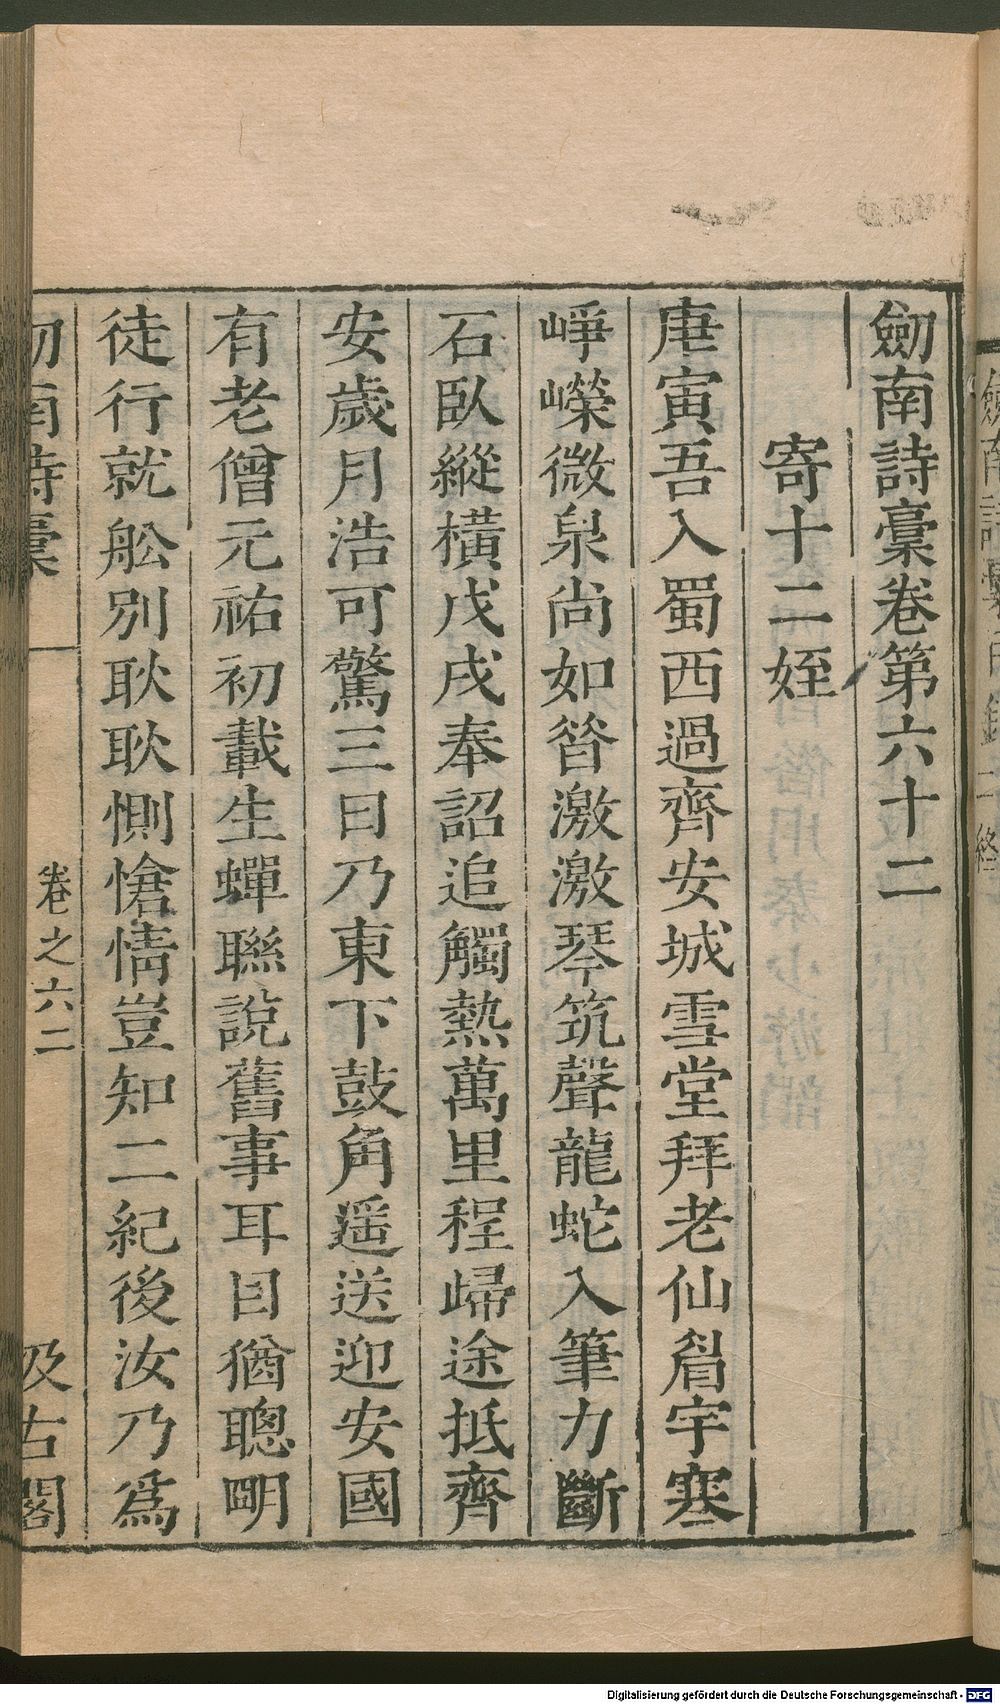 劒南詩稾卷第六十二
寄十二姪
庚寅吾入蜀西過齊安城雪堂拜老仙眉宇寒
崢嶸微泉尚如昔激激琴筑聲龍蛇入筆力斷
石臥縱橫戊戌奉詔追觸熱萬里程歸途抵齊
安歲月浩可驚三日乃東下鼓角遥送迎安國
有老僧元祐初載生蟬聯說舊事耳目猶聰明
徒行就舩別耿耿惻愴情豈知二紀後汝乃爲
劒南詩稾
卷之六二
汲古閣
Digitalisierung gefördert durch die Deutsche Forschungsgemeinschaft - DFG